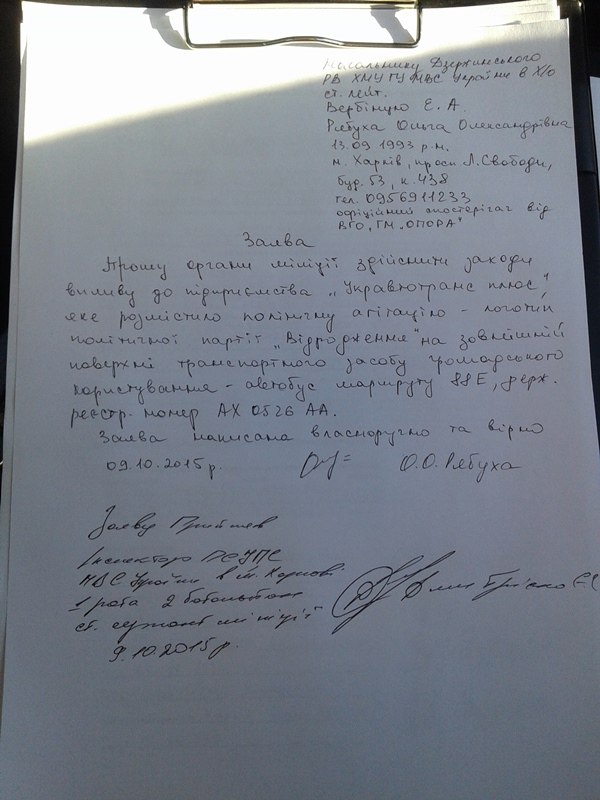 Начальнику Дзержинського
РВ ХМУ ГУ МВС України в Х/о
ст. лейт.
Вербіццю Е. А.
Рябуха Ольга Олександрівна
13.09 1993 р.н.
м. Харків, просп. Л. Свободи,
буд. 53, к. 438
тел. 0956911233
офіційний спостерігач від
ВГО, ГМ „ОПОРА"
Заява
Прошу органи міліції здійснити заходи
впливу до підприємства „Укравтотранс плюс",
яке розмістило політичну агітацію - логотип
політичної партії „Відродження" на зовнішній
поверхні транспортного засобу громадського
користування - автобус маршруту 88Е, держ.
реєстр. номер АХ 0526 АА.
Заява написана власноручно та вірно
09.10.2015 р. О.О. Рябуха
Заяву Прийняв
Інспектор
МВС України в м. Харкові
1 рота 2 батальйон
ст. сержант міліції
9.10.2015 р.